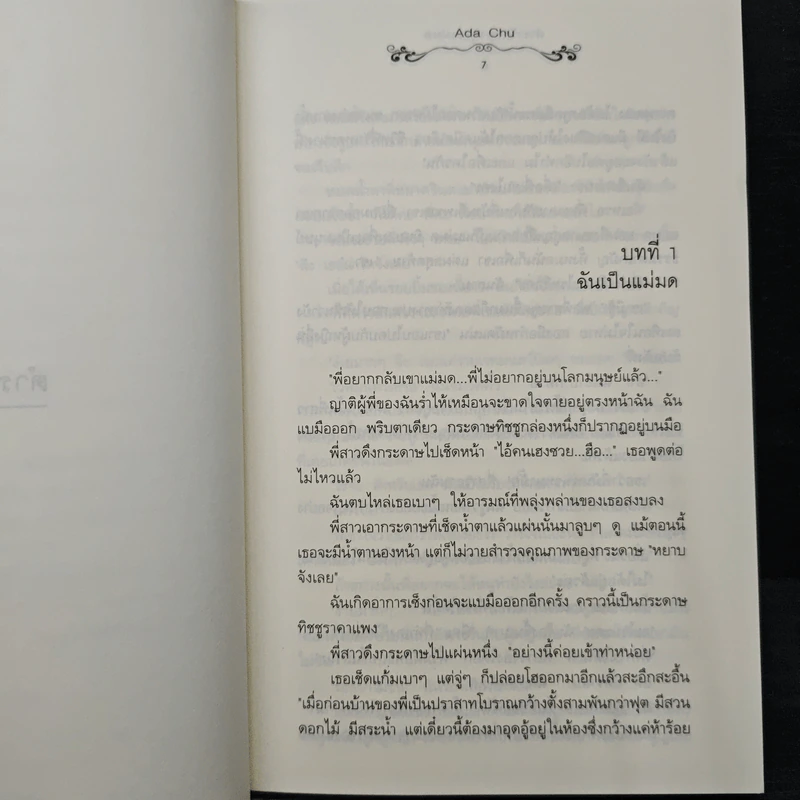 Ada Chu
7
บทที่ 1
ฉันเป็นแม่มด
"พี่อยากกลับเขาแม่มด...พี่ไม่อยากอยู่บนโลกมนุษย์แล้ว..."
ญาติผู้พี่ของฉันร่ำไห้เหมือนจะขาดใจตายอยู่ตรงหน้าฉัน ฉัน
แบมือออก พริบตาเดียว กระดาษทิชชูกล่องหนึ่งก็ปรากฏอยู่บนมือ
พี่สาวดึงกระดาษไปเช็ดหน้า "ไอ้คนเฮงซวย...ฮือ..." เธอพูดต่อ
ไม่ไหวแล้ว
ฉันตบไหล่เธอเบาๆ ให้อารมณ์ที่พลุ่งพล่านของเธอสงบลง
พี่สาวเอากระดาษที่เช็ดน้ำตาแล้วแผ่นนั้นมาลูบๆ ดู แม้ตอนนี้
เธอจะมีน้ำตานองหน้า แต่ก็ไม่วายสำรวจคุณภาพของกระดาษ "หยาบ
จังเลย"
ฉันเกิดอาการเซ็งก่อนจะแบมือออกอีกครั้ง คราวนี้เป็นกระดาษ
ทิชชูราคาแพง
พี่สาวดึงกระดาษไปแผ่นหนึ่ง "อย่างนี้ค่อยเข้าท่าหน่อย"
เธอเช็ดแก้มเบาๆ แต่จู่ๆ ก็ปล่อยโฮออกมาอีกแล้วสะอึกสะอื้น
"เมื่อก่อนบ้านของพี่เป็นปราสาทโบราณกว้างตั้งสามพันกว่าฟุต มีสวน
ดอกไม้ มีสระน้ำ แต่เดี๋ยวนี้ต้องมาอุดอู้อยู่ในห้องซึ่งกว้างแค่ห้าร้อย